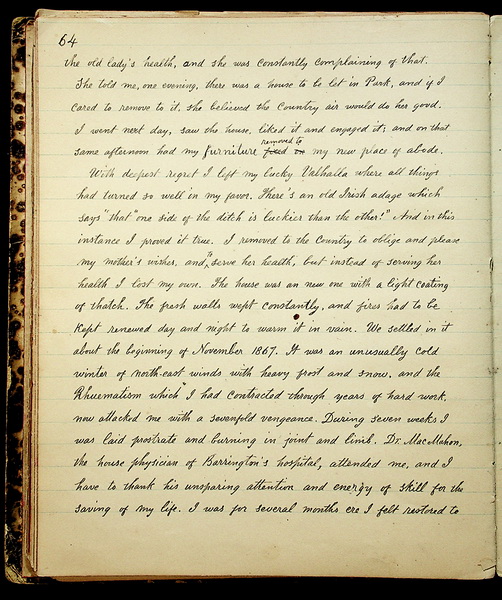 64
the old lady's health, and she was constantly complaining of that.
She told me, one evening, there was a house to be let in Park, and if I
cared to remove to it, she believed the Country air would do her good.
I went next day, saw the house, liked it and engaged it; and on that
removed to
same afternoon had my furniture fixed on my new place of abode.
With deepest regret I left my lucky Valhalla where all things
had turned so well in my favor. There's an old Irish adage which
says "that "one side of the ditch is luckier than the other!" And in this
instance I proved it true. I removed to the Country to oblige and please
to
my mother's wishes, and serve her health, but instead of serving her
health I lost my own. The house was an new one with a light coating
of thatch. The fresh walls wept constantly, and fires had to be
kept renewed day and night to warm it in vain. We settled in it
about the beginning of November 1867. It was an unusually cold
winter of north-east winds with heavy frost and snow, and the
Rhuematism which I had contracted through years of hard work,
now attacked me with a sevenfold vengeance. During seven weeks I
was laid prostrate and burning in joint and limb. Dr. MacMahon,
the house physician of Barrington's hospital, attended me, and I
have to thank his unsparing attention and energy of skill for the
saving of my life. I was for several months ere I felt restored to